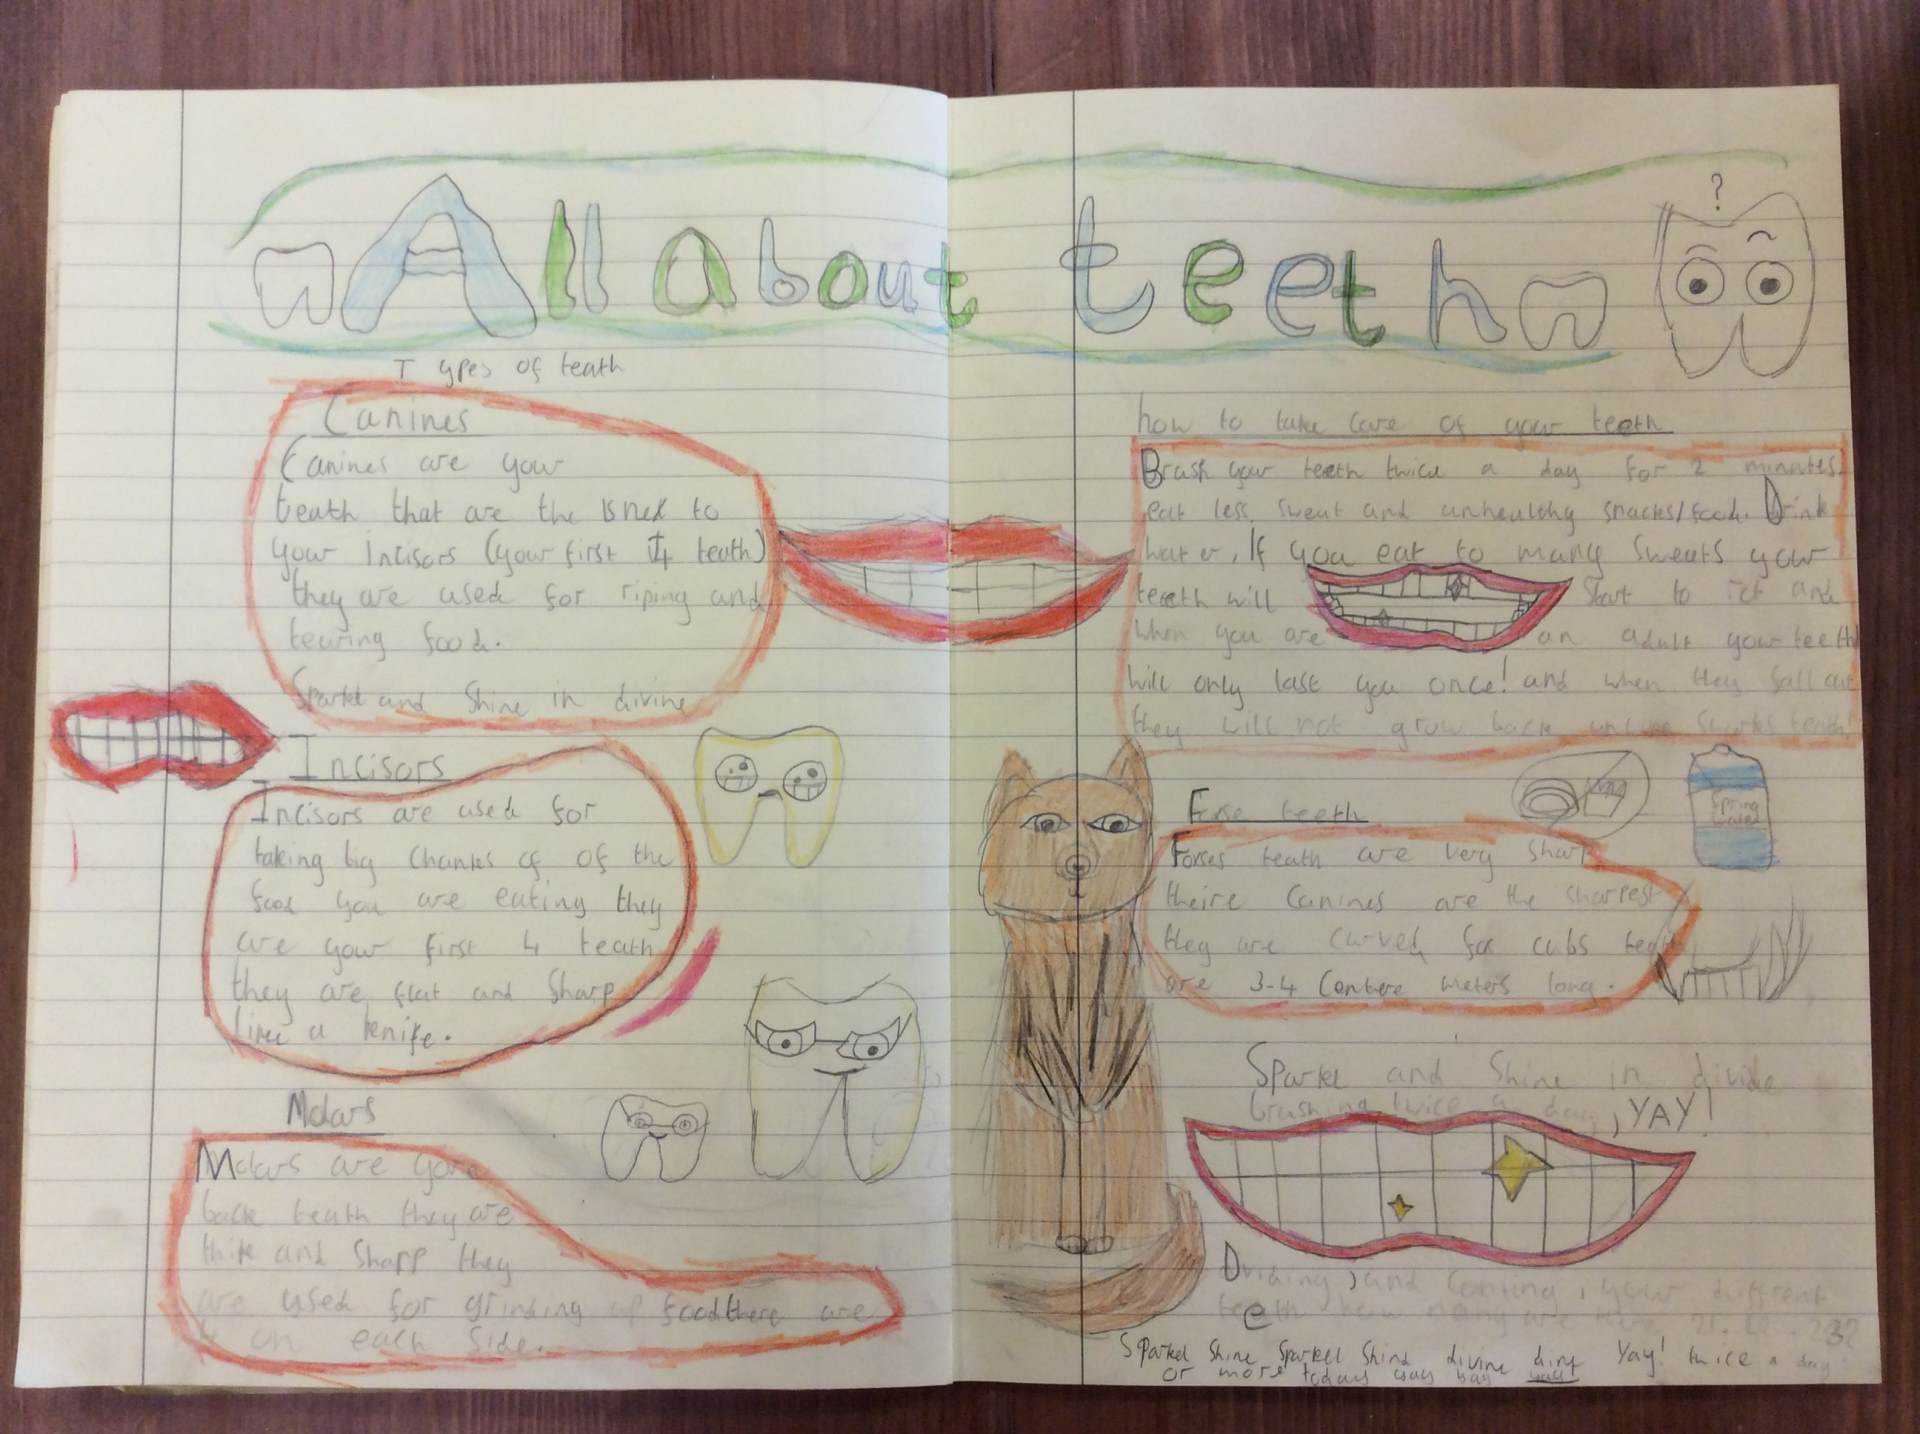 All about teeth
?
Types of teath
Canines
Canines are your
teath that are the is next to
your incisors (your first 4 teath)
they are used for riping and
tearing food.
Sparkel and Shine in divine
Incisors
Incisors are used for
taking big chunks of of the
food you are eating they
are your first 4 teath
they are flat and Sharp
like a knife.
Molars
Molars are your
back teath they are
thik and Sharp they
are used for grinding up food there are
4 on each side.
how to take care of your teeth
Brush your teeth twice a day for 2 minutes.
eat less sweat and unhealthy snacks/food. Drink
water. If you eat to many sweats your
teeth will start to rot and
when you are an adult your teeth
will only last you once! and when they fall out
they will not grow back unlike Sharks teeth!
teeth
Spring
water
teath are very sharp
theire Canines are the sharpest
they are curved fox cubs teath
are 3-4 Centere meters long.
Sparkel and Shine in divide
brushing twice a day, YAY!
Dividing, and Conting, your different
teeth how many are there
Sparkel Shine Sparkell Shine divine Yay! twice a day
or more